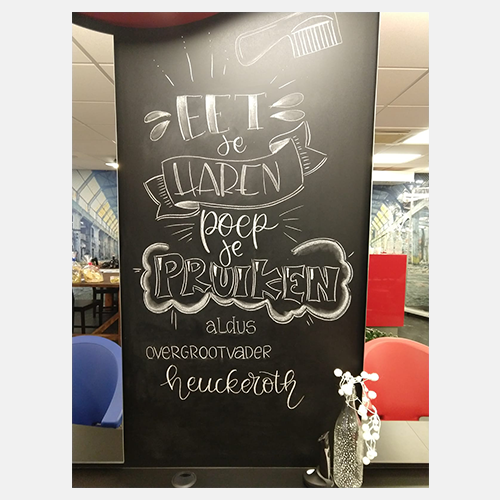 EET
je
HAREN
poep
je
PRUIKEN
aldus
OVERGROOTVADER
heuckeroth